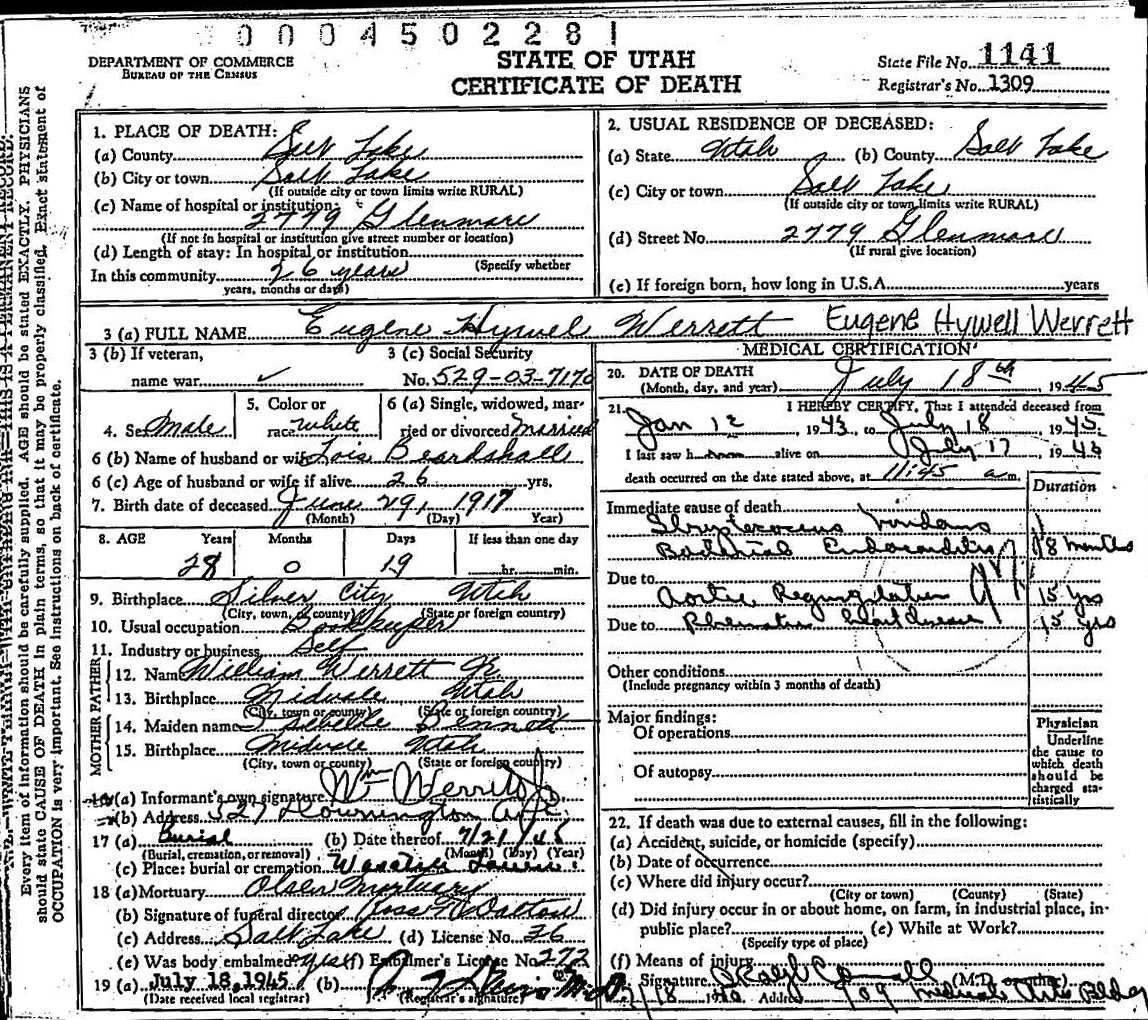 0004502281
DEPARTMENT OF COMMERCE
BUREAU OF THE CENSUS
STATE OF UTAH
CERTIFICATE OF DEATH
State File No. 1141
Registrar's No. 1309
Every item of information should be carefully supplied. AGE should be stated EXACTLY. PHYSICIANS
should state CAUSE OF DEATH in plain terms, so that it may be properly classified. Exact statement of
OCCUPATION is very important. See Instructions on back of certificate.
1. PLACE OF DEATH:
(a) County Salt Lake
(b) City or town Salt Lake
(If outside city or town limits write RURAL)
(c) Name of hospital or institution:
2779 Glenmare
(If not in hospital or institution give street number or location)
(d) Length of stay: In hospital or institution
(Specify whether
In this community 26 years
years, months or days)
2. USUAL RESIDENCE OF DECEASED:
(a) State Utah (b) County Salt Lake
(c) City or town Salt Lake
(If outside city or town limits write RURAL)
(d) Street No. 2779 Glenmare
(If rural give location)
(e) If foreign born, how long in U.S.A. years
3 (a) FULL NAME Eugene Hywel Werrett Eugene Hywell Werrett
3 (b) If veteran,
name war ✓
3 (c) Social Security
No. 529-03-7170
4. Sex Male
5. Color or
race white
6 (a) Single, widowed, mar-
ried or divorced Married
6 (b) Name of husband or wife Lois Beardshall
6 (c) Age of husband or wife if alive 26 yrs.
7. Birth date of deceased June 29, 1917
(Month) (Day) Year)
8. AGE Years Months Days If less than one day
28 0 19 hr. min.
9. Birthplace Silver City Utah
(City, town, or county) (State or foreign country)
10. Usual occupation Bookkeeper
11. Industry or business Self
FATHER
12. Name William Werrett Jr.
13. Birthplace Midvale Utah
(City, town or county) (State or foreign country)
MOTHER
14. Maiden name Bennett
15. Birthplace Midvale Utah
(City, town or county) (State or foreign country)
16 (a) Informant's own signature Wm Werrett Jr
(b) Address 527 Downington Ave
17 (a) Burial (b) Date thereof 7/21/45
(Burial, cremation, or removal) (Month) (Day) (Year)
(c) Place: burial or cremation Wasatch Lawn
18 (a) Mortuary Olsen Mortuary
(b) Signature of funeral director Ross Dalton
(c) Address Salt Lake (d) License No. 36
(e) Was body embalmed? yes (f) Embalmer's License No. 272
19 (a) July 18, 1945 (b)
(Date received local registrar) (Registrar's signature)
MEDICAL CERTIFICATION
20. DATE OF DEATH
(Month, day, and year) July 18th, 1945
21. I HEREBY CERTIFY, That I attended deceased from
Jan 12, 1943, to July 18, 1945;
I last saw h alive on July 17, 1945
death occurred on the date stated above, at 11:45 a m.
Duration
Immediate cause of death
Streptococcus Viridans
Bacterial Endocarditis 18 months
Due to
Aortic Regurgitation 15 yrs
Due to Rheumatic Heart disease 15 yrs
Other conditions
(Include pregnancy within 3 months of death)
Major findings:
Of operations
Of autopsy
Physician
Underline
the cause to
which death
should be
charged sta-
tistically
22. If death was due to external causes, fill in the following:
(a) Accident, suicide, or homicide (specify)
(b) Date of occurrence
(c) Where did injury occur?
(City or town) (County) (State)
(d) Did injury occur in or about home, on farm, in industrial place, in-
public place? (e) While at Work?
(Specify type of place)
(f) Means of injury
Signature (M.D. or other)
Address 709 Medical Arts Bldg